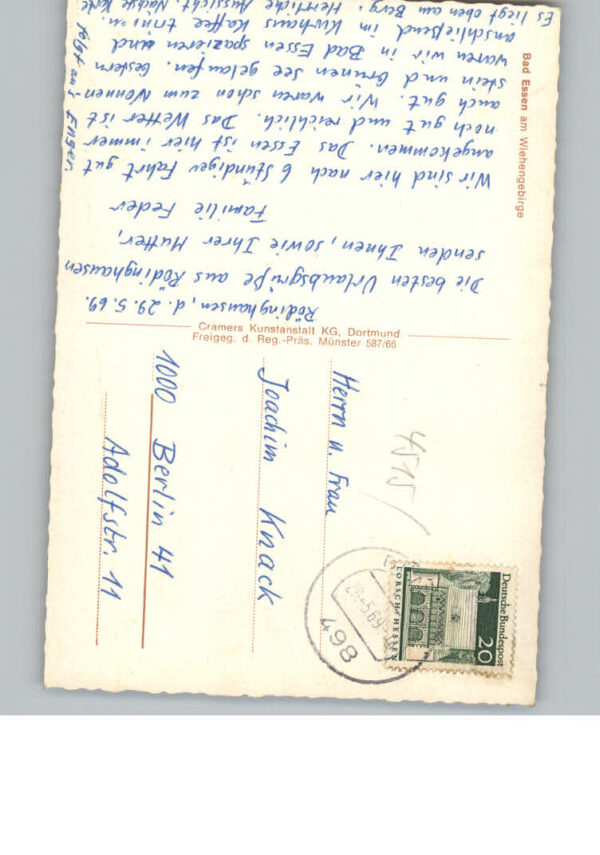 Bad Essen am Wiehengebirge
Rödinghausen, d. 29.5.69.
Die besten Urlaubsgrüße aus Rödinghausen
senden Ihnen, sowie Ihrer Mutter,
Familie Feder
Wir sind hier nach 6 stündiger Fahrt gut
angekommen. Das Essen ist hier immer
noch gut und reichlich. Das Wetter ist
auch gut. Wir waren schon zum Nonnen-
stein und Grünen See gelaufen. Gestern
waren wir in Bad Essen spazieren und
anschließend im Kurhaus Kaffee trinken.
Es liegt oben am Berg. Herrliche Aussicht. Nächste Karte
folgt aus
Cramers Kunstanstalt KG, Dortmund
Freigeg. d. Reg.-Präs. Münster 587/66
4515/
Herrn u. Frau
Joachim Knack
1000 Berlin 41
Adolfstr. 11
Deutsche Bundespost
20
LORSCH/HESSEN
498